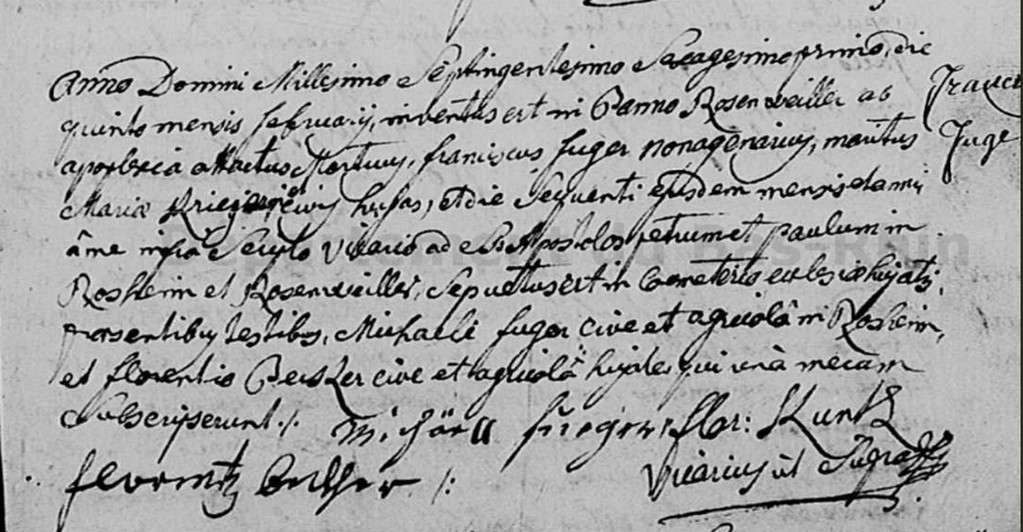 Anno Domini Millesimo Septingentesimo Sexagesimo primo, die
quinto mensis februarij, inventus est in Banno Rosenweiller ab
apoplexia attactus Mortuus, franciscus fuger nonagenarius, maritus
Mariæ Krieger civis hujas, et die Sequenti ejusdem mensis et anni
â me infra Scripto Vicario ad SS Apostolos petrum et paulum in
Rosheim et Rosenweiller, Sepultus est in Cœmeterio ecclesiæ hujatis,
præsentibus testibus, Michaele fuger cive et agricolâ in Rosheim,
et florentio Becker cive et agricolâ hujate, qui unà mecum
Subscripserunt ./.
Michäell fueger flor: Kuntz
florentz becker ./: Vicarius ut Supra
Franci
Fuge
Bas-Rhin